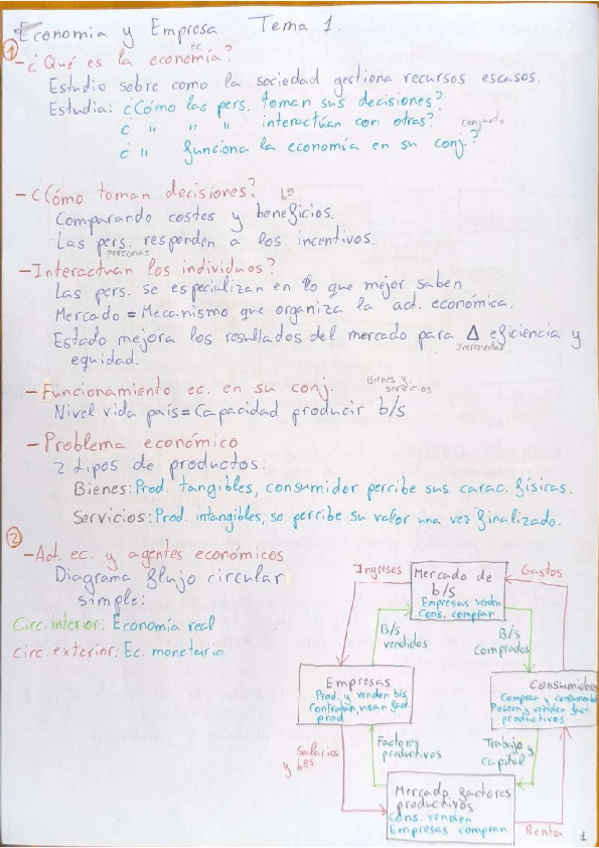 Economia y Empresa Tema 1.
1
- ¿Qué es la economía?
ec.
Estudio sobre como la sociedad gestiona recursos escasos.
Estudia: ¿Cómo las pers. toman sus decisiones?
¿ " " " interactúan con otras?
¿ " funciona la economía en su conj.?
conjunto
- ¿Cómo toman decisiones?
bᵒˢ
Comparando costes y beneficios.
Las pers. responden a los incentivos.
personas
- Interactuan los individuos?
Las pers. se especializan en lo que mejor saben
Mercado = Mecanismo que organiza la act. económica.
Estado mejora los resultados del mercado para Δ eficiencia y
Incrementar
equidad.
- Funcionamiento ec. en su conj.
Bienes y
servicios
Nivel vida país = Capacidad producir b/s
- Problema económico
2 tipos de productos:
Bienes: Prod. tangibles, consumidor percibe sus carac. físicas.
Servicios: Prod. intangibles, se percibe su valor una vez finalizado.
2
- Act. ec. y agentes económicos
Diagrama flujo circular
simple:
Circ. interior: Economía real
Circ. exterior: Ec. monetaria
Ingresos
Mercado de
b/s
Empresas venden
Cons. compran
Gastos
B/s
vendidos
B/s
Comprados
Empresas
Prod. y venden b/s
Contratan, usan fact.
prod.
Consumidores
Compran y consumen b/s
Poseen y venden fact.
productivos
Salarios
y bᵒˢ
Factores
productivos
Trabajo y
capital
Mercado factores
productivos
Cons. venden
Empresas compran
Renta
1